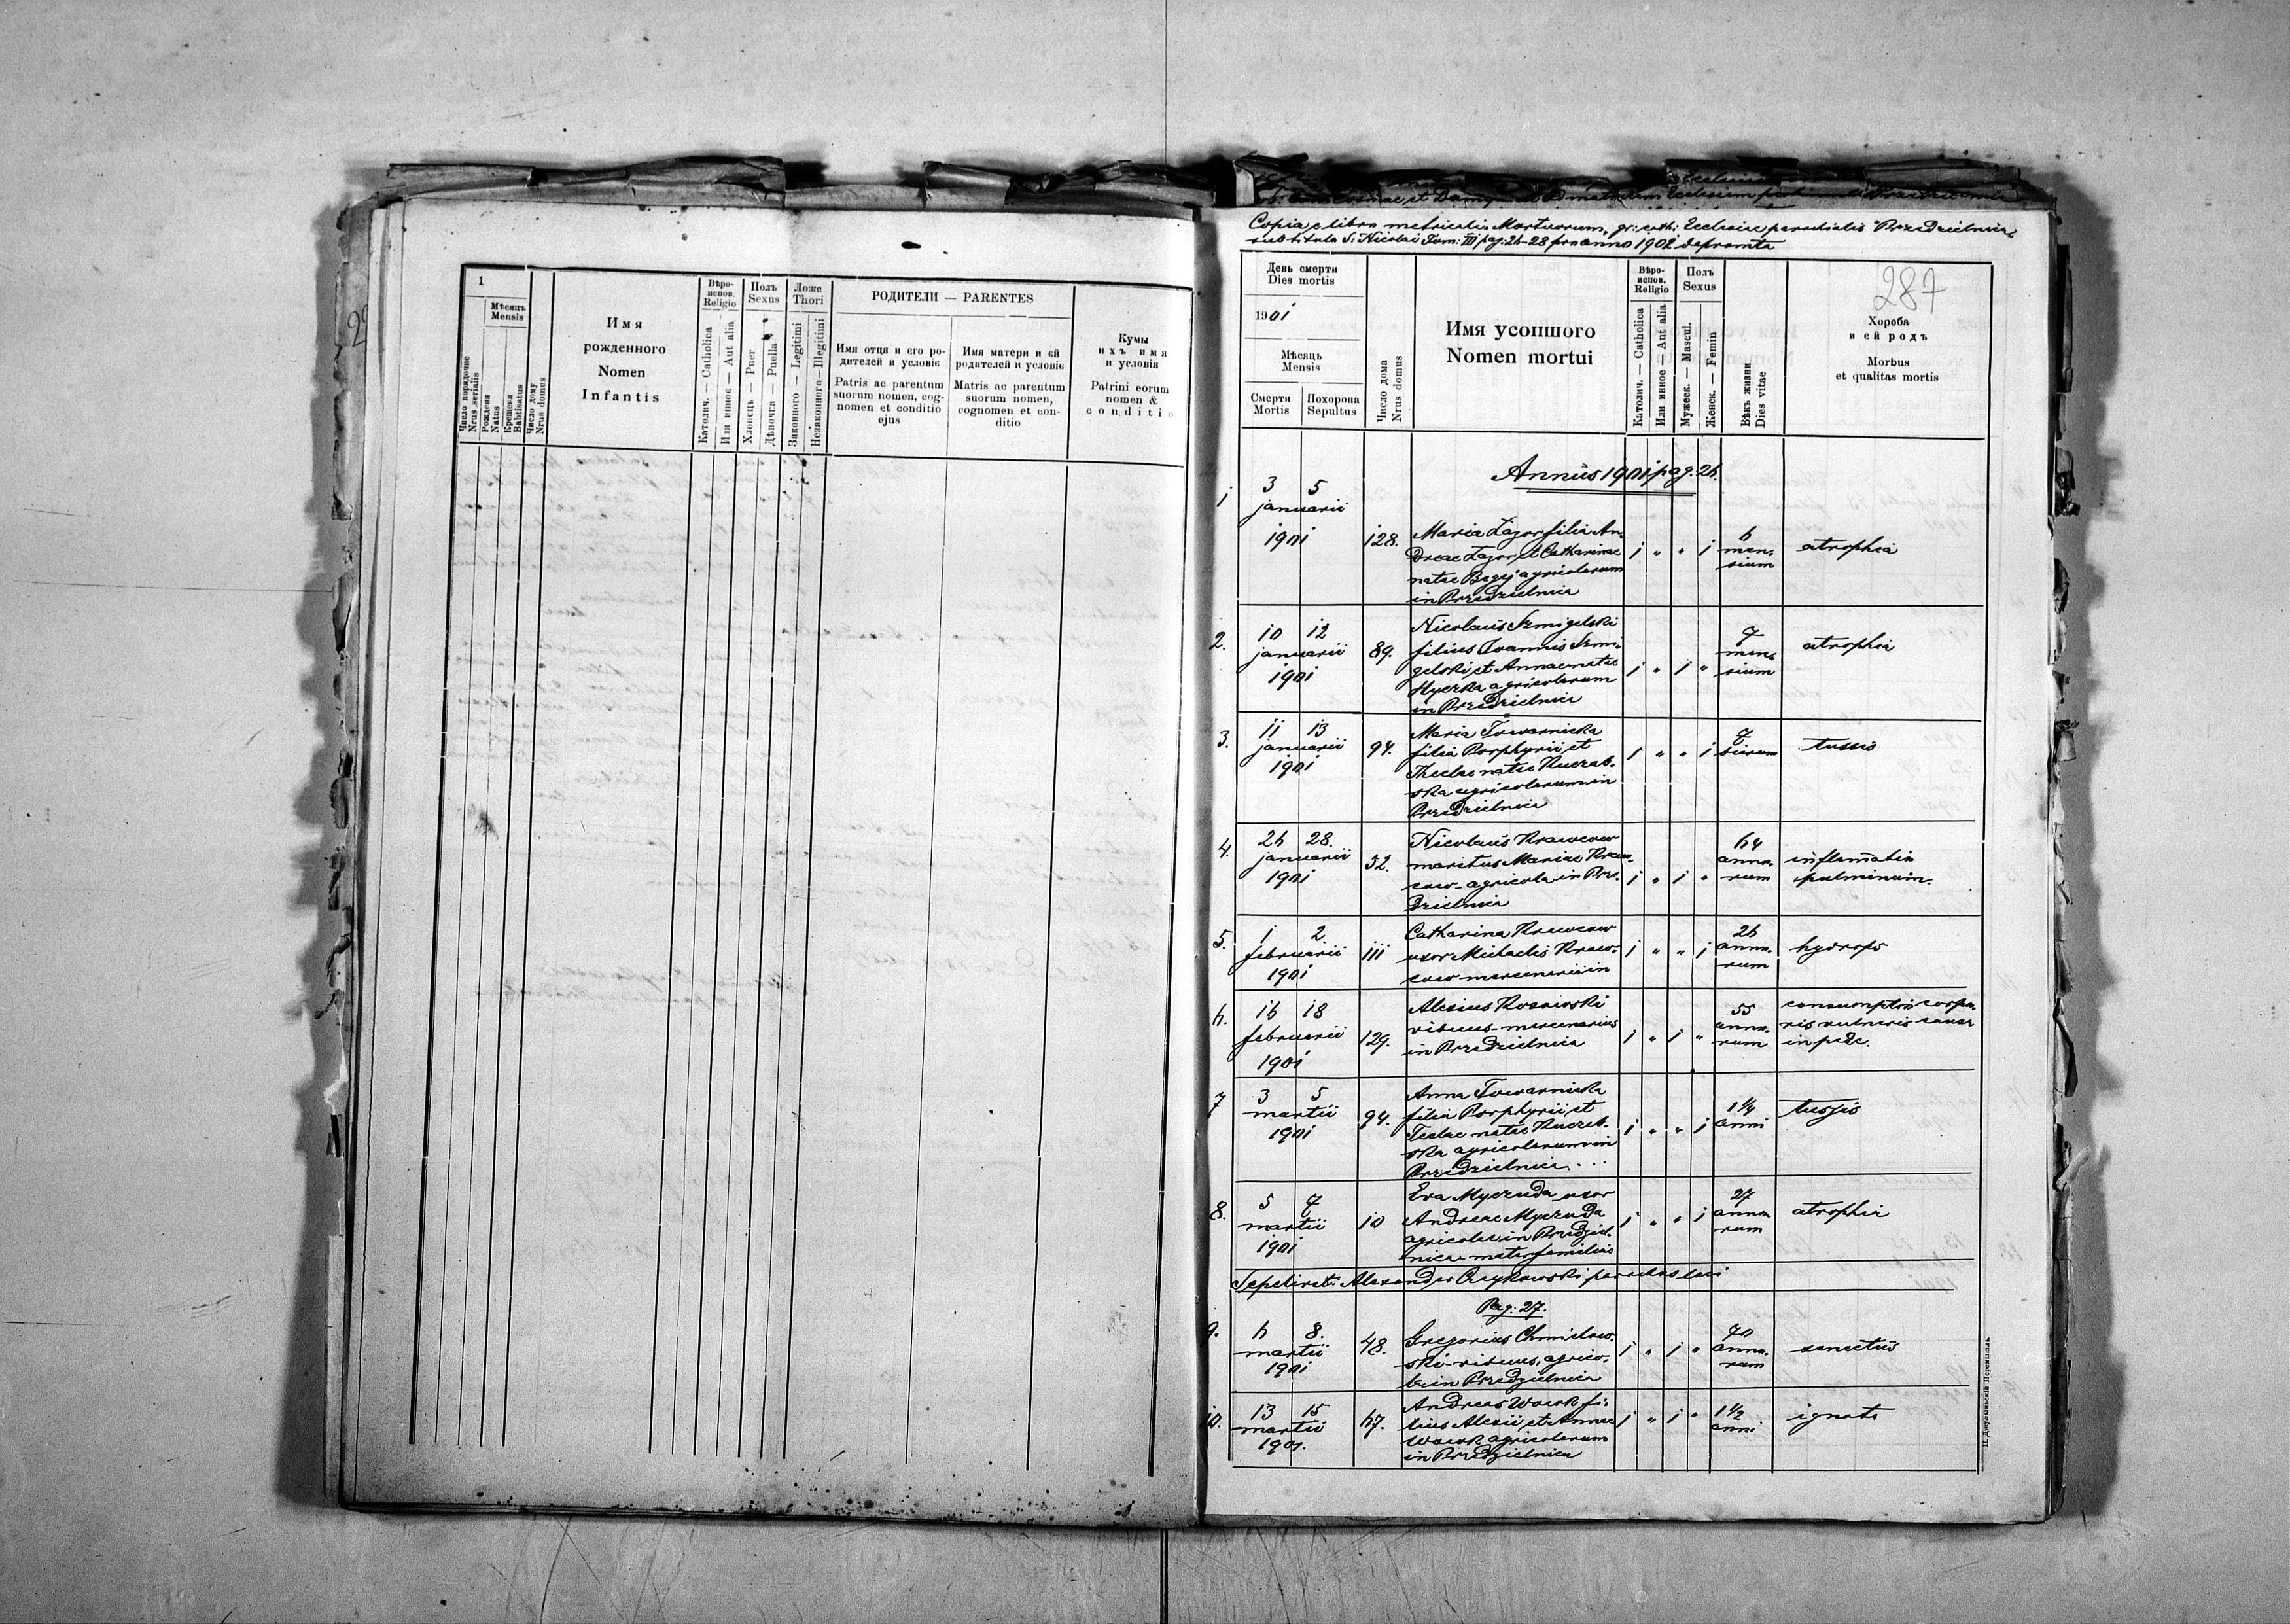 1
Мѣсяцъ
Mensis
Число порядочне
Nrus serialis
Рожденя
Natus
Крещеня
Babtisatus
Число дому
Nrus domus
Имя
рожденного
Nomen
Infantis
Вѣро-
испов.
Religio
Католич. — Catholica
Или инное — Aut alia
Полъ
Sexus
Хлопець — Puer
Дѣвочка — Puella
Ложе
Thori
Законного — Legitimi
Незаконного — Illegitimi
РОДИТЕЛИ — PARENTES
Имя отця и єго ро-
дителей и условіє
Patris ac parentum
suorum nomen, cog-
nomen et conditio
ejus
Имя матери и єй
родителей и условіє
Matris ac parentum
suorum nomen,
cognomen et con-
ditio
Кумы
ихъ имя
и условія
Patrini eorum
nomen &
conditio
Copia e libro metricali "Mortuorum" gr: cath: Ecclesiae parochialis "Przedzielnica"
sub titulo S: Nicolai Tom: III pag: 26-28 pro anno 1901 depromta
287
День смерти
Dies mortis
1901
Мѣсяць
Mensis
Смерти
Mortis
Похорона
Sepultus
Число дома
Nrus domus
Имя усопшого
Nomen mortui
Вѣро-
испов.
Religio
Католич. — Catholica
Или инное — Aut alia
Полъ
Sexus
Мужеск. — Mascul.
Женск. — Femin
Вѣкъ жизни
Dies vitae
Хороба
и єй родъ
Morbus
et qualitas mortis
Annus 1901 pag. 26.
1 3 5
januarii
1901 128. Maria Lazor filia An-
dreae Lazor, et Catharinae
natae Begej agricolarum
in Przedzielnica
1 " " 1 6 men-
sium atrophia
2. 10 12
januarii
1901 89. Nicolaus Szmigelski
filius Ioannis Szmi-
gelski et Annae natae
Hyczka agricolarum
in Przedzielnica
1 " 1 " 7 men-
sium atrophia
3. 11 13
januarii
1901 94. Maria Towarnicka
filia Porphyrii et
Theclae natae Kuczab-
ska agricolarum in
Przedzielnica
1 " " 1 7 dierum tussis
4. 26 28.
januarii
1901 52. Nicolaus Krawcow
maritus Mariae Kraw-
cow - agricola in Prze-
dzielnica
1 " 1 " 64 anno-
rum inflamatio
pulminum.
5. 1 2
februarii
1901 111 Catharina Krawcow
uxor Michaelis Kraw-
cow mercenarii in
1 " " 1 26 anno-
rum hydrops
6. 16 18
februarii
1901 129. Alexius Kossowski
viduus - mercenarius
in Przedzielnica
1 " 1 " 55 anno-
rum consumptio corpo-
ris vulneris causa
in pede.
7 3 5
martii
1901 94. Anna Towarnicka
filia Porphyrii et
Teclae natae Kuczab-
ska agricolarum in
Przedzielnica...
1 " " 1 1 1/4
anni tussis
8. 5 7
martii
1901 10 Eva Myczuda uxor
Andreae Myczuda
agricolae in Przedziel-
nica mater familias
1 " " 1 27 anno-
rum atrophia
Sepelivit: Alexander Czajkowski parochus loci
Pag: 27.
9. 6 8.
martii
1901 48. Gregorius Chmielow-
ski - viduus, agrico-
la in Przedzielnica
1 " 1 " 70 anno-
rum senectus
10. 13 15
martii
1901. 67. Andreas Wowk fi-
lius Alexii et Annae
Wowk agricolarum
in Przedzielnica
1 " 1 " 1 1/2
anni ignota